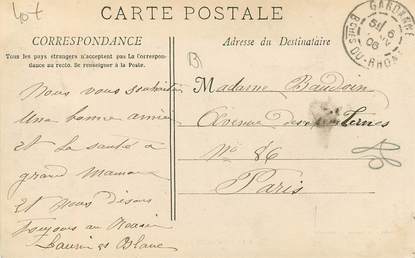 40f
CARTE POSTALE
CORRESPONDANCE
Tous les pays étrangers n'acceptent pas La Correspon-
dance au recto. Se renseigner à la Poste.
Adresse du Destinataire
GARDANNE
BCHES-DU-RHONE
06
B
Nous vous souhaitons
Une bonne année
et La santé a
grand Maman
et Nous disons
Toujours au
Laurin et Blanc
Madame Baudoin
Avenue des Ternes
No 86
Paris